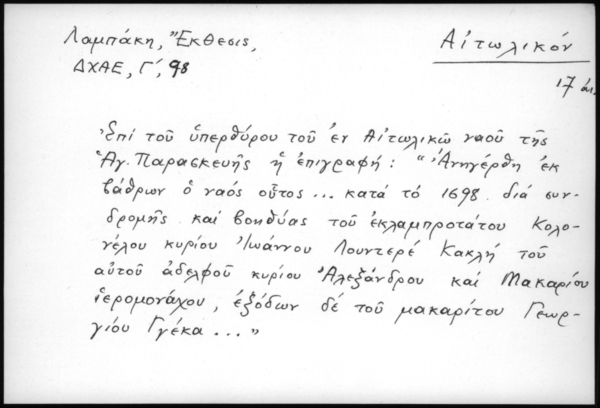 Λαμπάκη, Ἔκθεσις,
ΔΧΑΕ, Γ΄, 98
Αἰτωλικόν
17 αι.
Ἐπί τοῦ ὑπερθύρου τοῦ ἐν Αἰτωλικῶ ναοῦ τῆς
Ἁγ. Παρασκευῆς ἡ ἐπιγραφή: "Ἀνηγέρθη ἐκ
βάθρων ὁ ναός οὗτος... κατά τό 1698 διά συν-
δρομῆς καί βοηθύας τοῦ ἐκλαμπροτάτου Κολο-
νέλου κυρίου Ἰωάννου Λουντερέ Κακλῆ τοῦ
αὐτοῦ ἀδελφοῦ κυρίου Ἀλεξάνδρου καί Μακαρίου
ἱερομονάχου, ἐξόδων δέ τοῦ μακαρίτου Γεωρ-
γίου Γγέκα..."